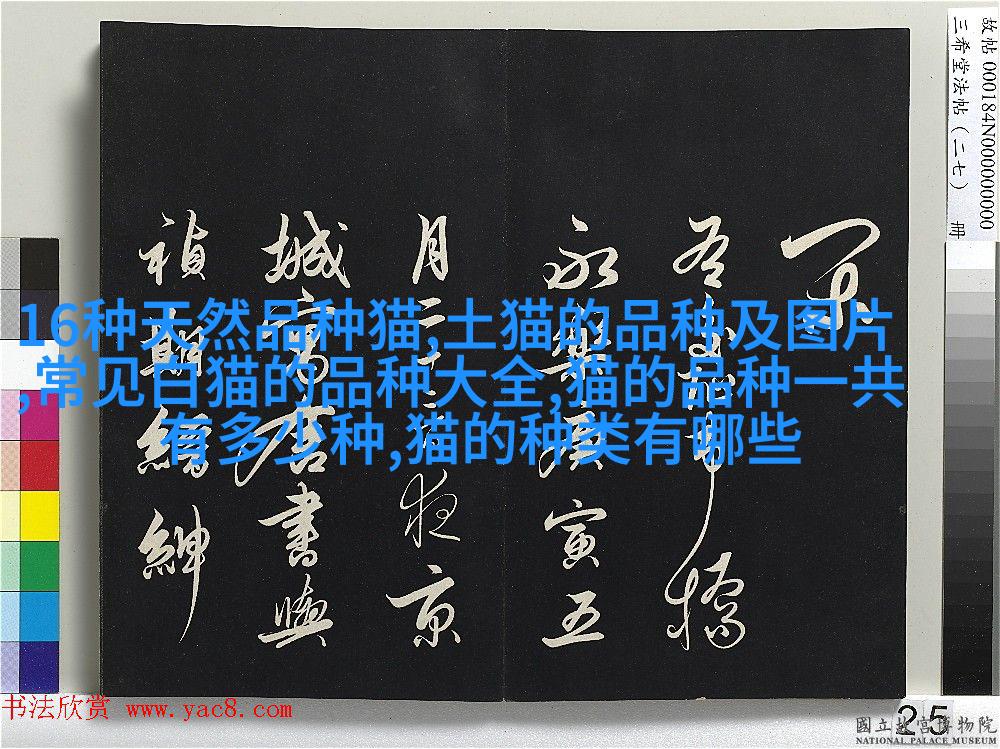 故帖 000184N000000000
三希堂法帖（二七） 册
16种天然品种猫,土猫的品种及图片
,常见白猫的品种大全,猫的品种一共
有多少种,猫的种类有哪些
永樂庚寅五
月二十二夜京
城寓舍書與
禎期繪紳
书法欣赏 www.yac8.com
25
國立故宮博物院
NATIONAL PALACE MUSEUM